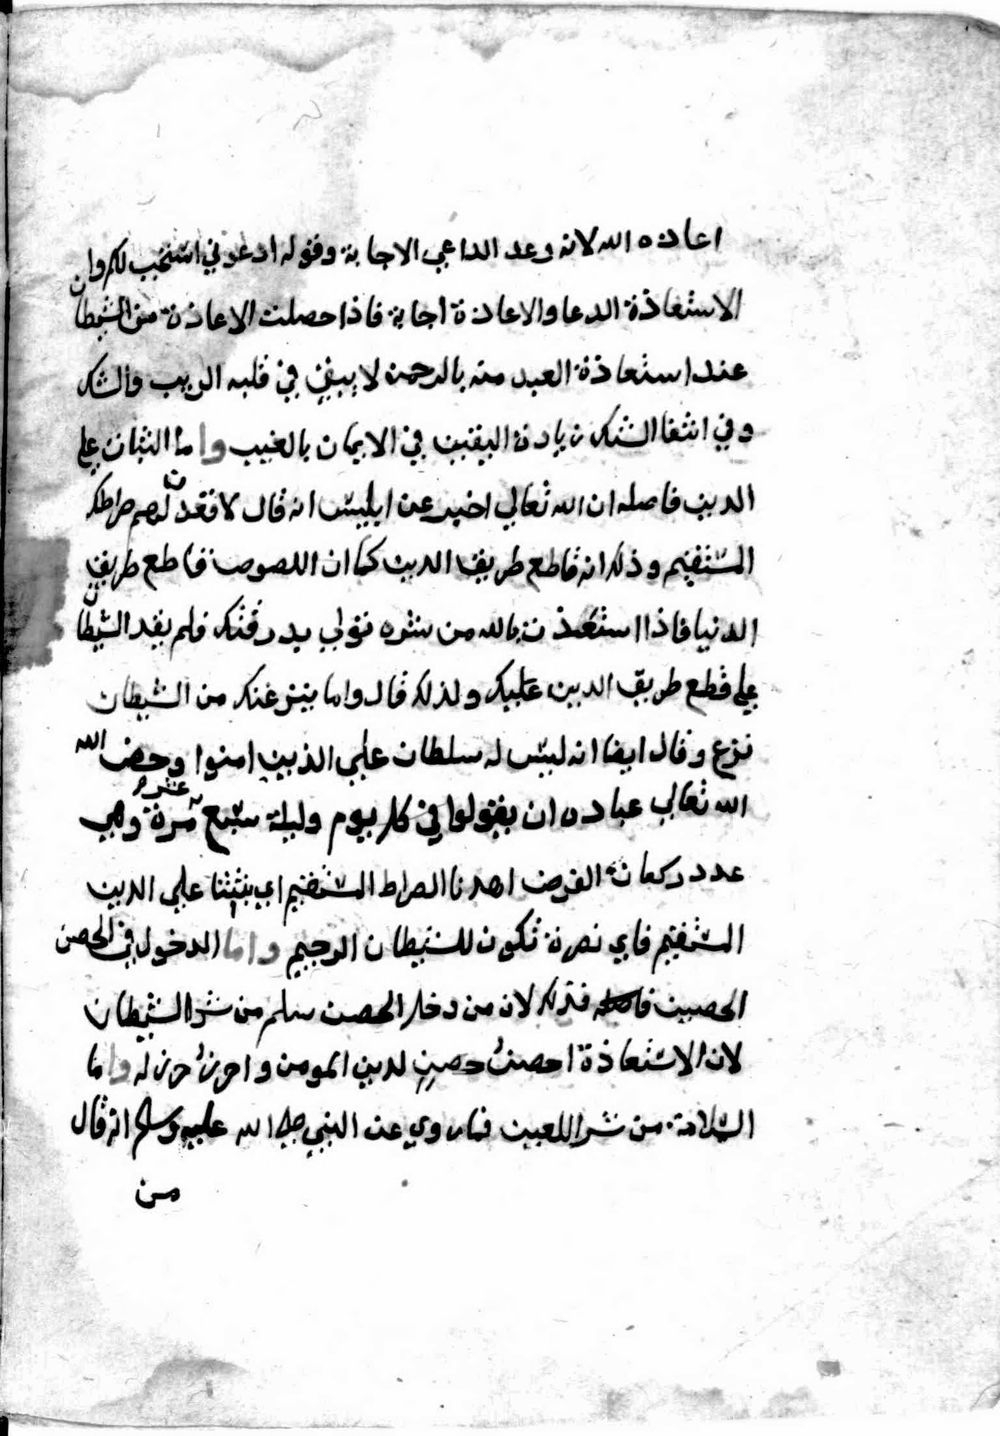 اعاذه الله لانه وعد الداعي الاجابة وقوله ادعوني استجب لكم وان
الاستعاذة الدعا والاعاذة اجابة فاذا حصلت الاعاذة من الشيطان
عند استعاذة العبد منه بالرحمن لا يبقي في قلبه الريب والشك
وفي انتفا الشك زيادة اليقين في الايمان بالغيب واما الثبات علي
الدين فاصله ان الله تعالي اخبر عن ابليس انه قال لاقعدن لهم صراطك
المستقيم وذلك انه قاطع طريق الدين كما ان اللصوص قاطع طريق
الدنيا فاذا استعذت بالله من شره تولي بدرقتك فلم يقد الشيطان
علي قطع طريق الدين عليك ولذلك قال واما ينزغنك من الشيطان
نزغ وقال ايضا انه ليس له سلطان علي الذين امنوا وحض الله
الله تعالي عباده ان يقولوا في كل يوم وليلة سبع عشرة مرة وهي
عدد ركعات الفرض اهدنا الصراط المستقيم اي يثبتنا علي الدين
المستقيم فاي نصرة تكون للشيطان الرجيم واما الدخول في الحصن
الحصين فذلك لان من دخل الحصن سلم من شر الشيطان
لان الاستعاذة احصن حصين لدين المومن واحرز حرز له واما
السلامة من شر اللعين فما روي عن النبي صلي الله عليه وسلم انه قال
من